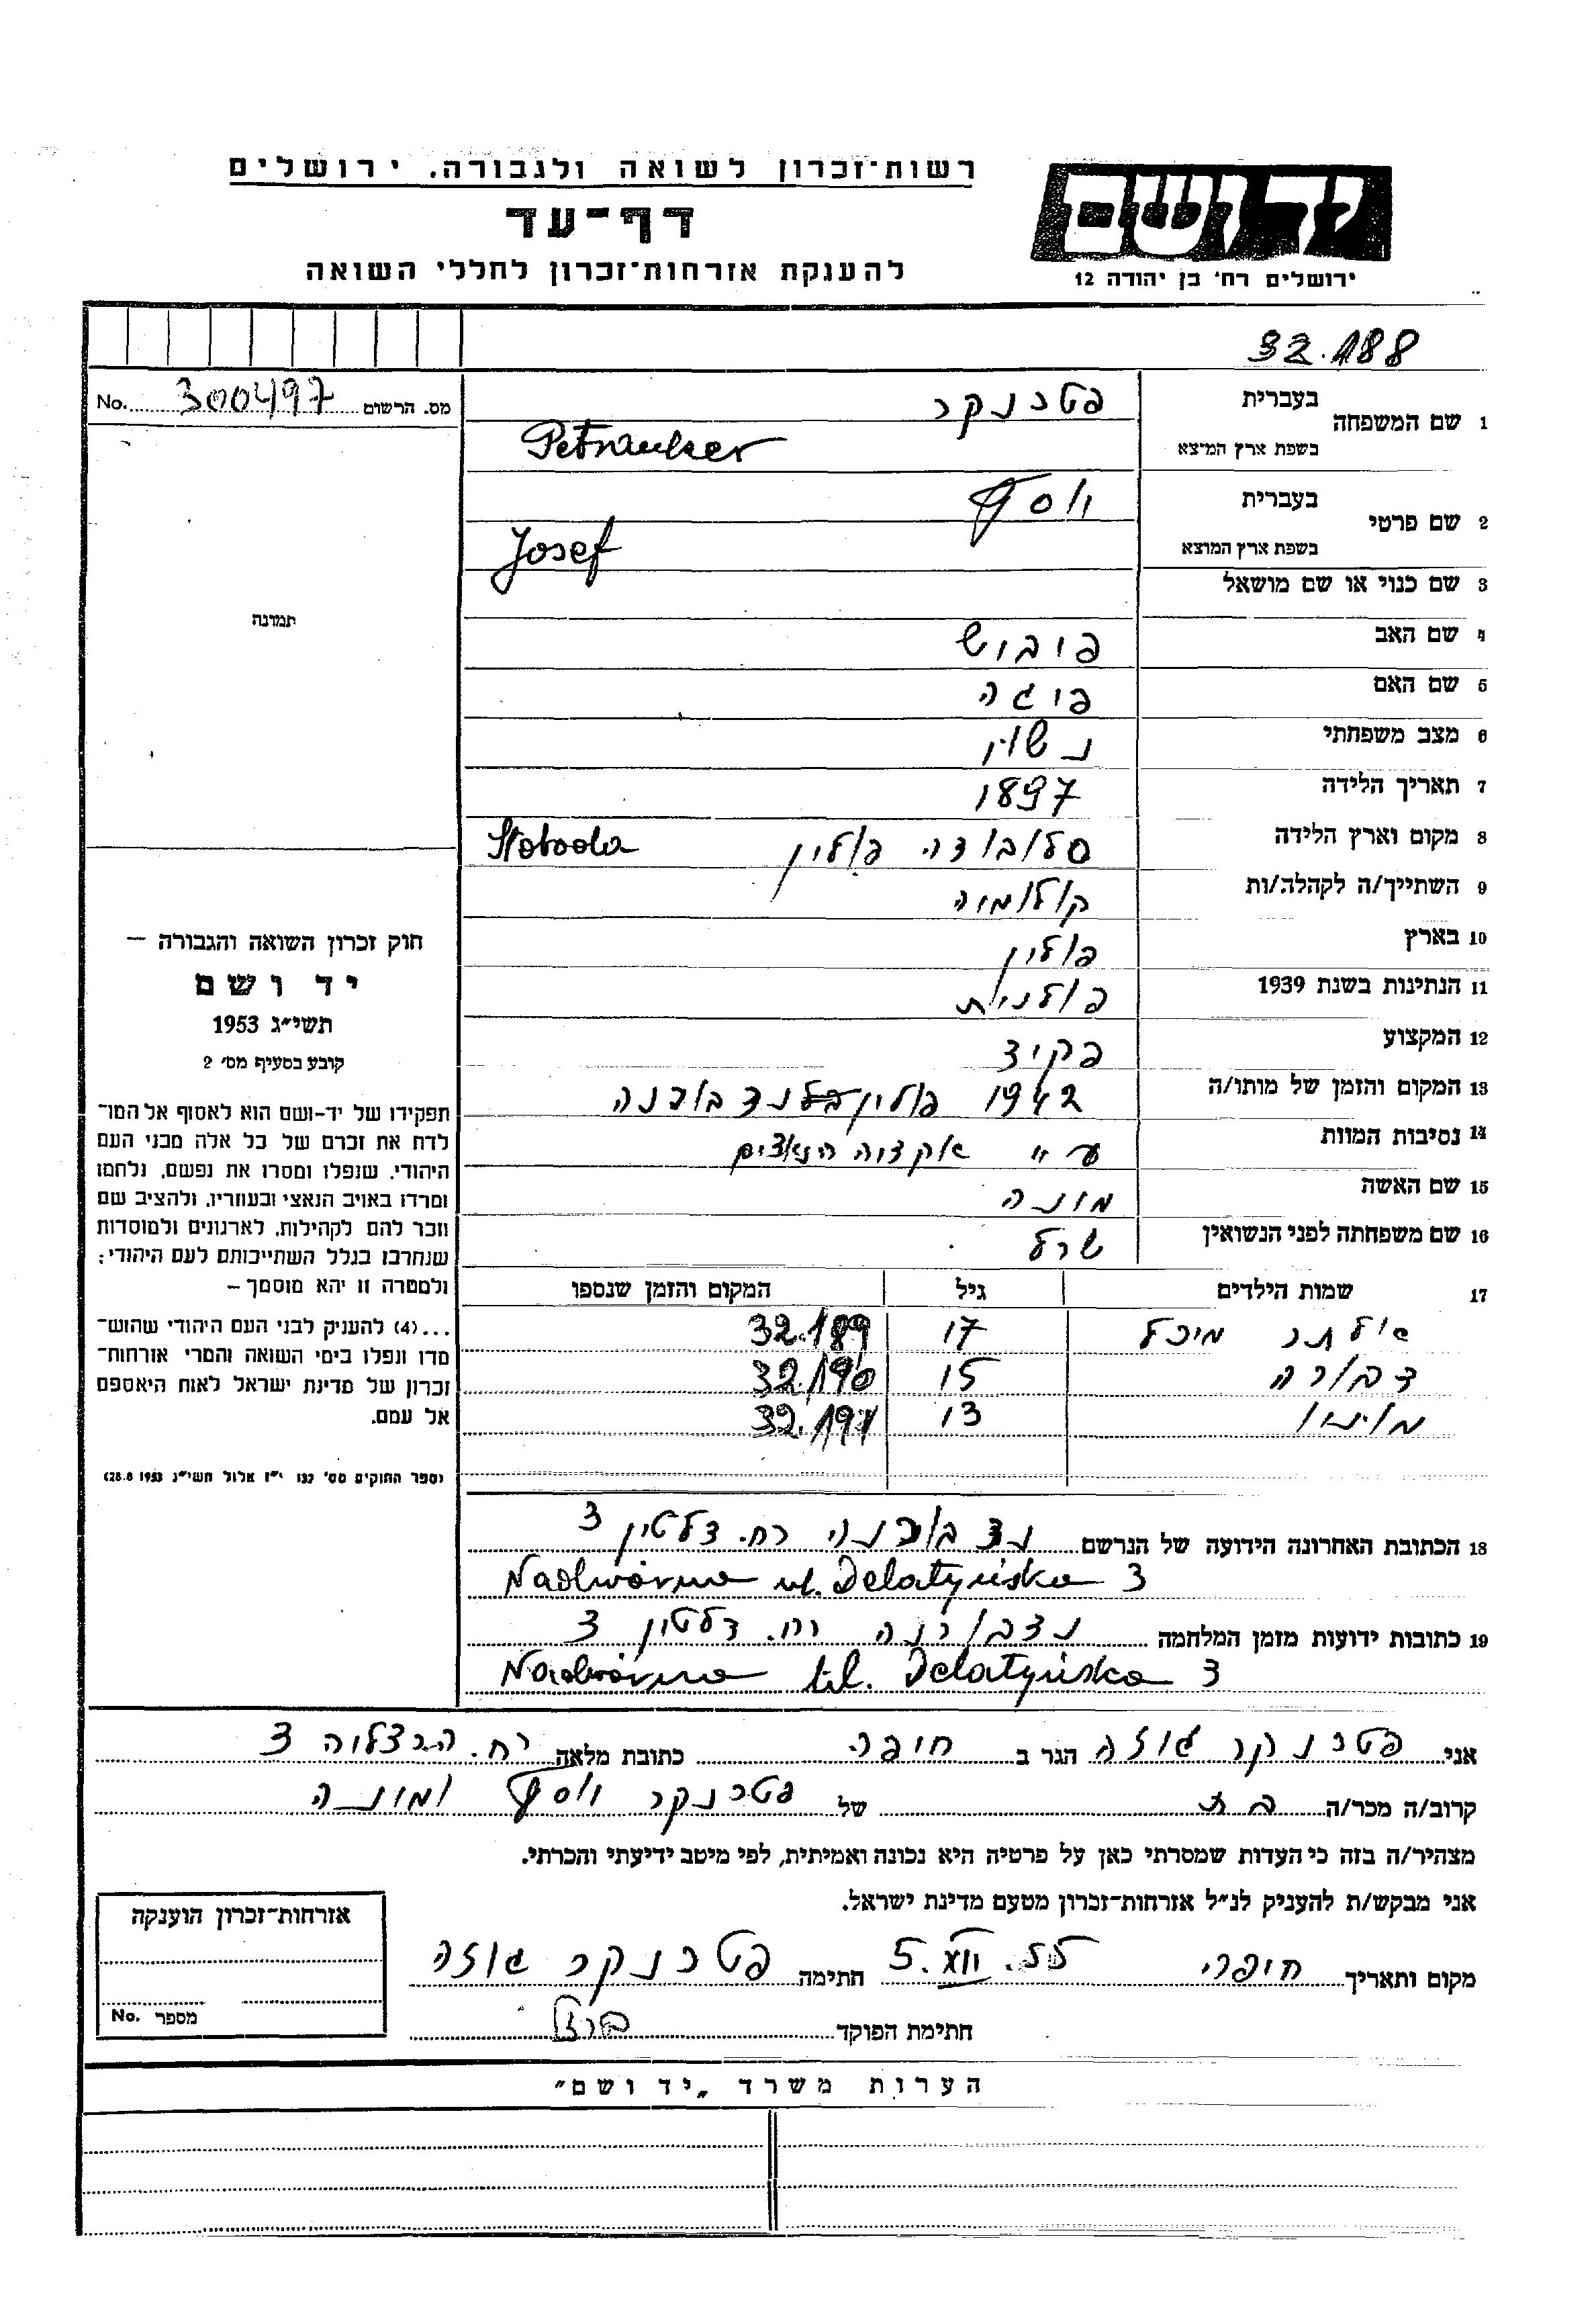 רשות־זכרון לשואה ולגבורה. ירושלים
יד ושם
דף־עד
להענקת אזרחות־זכרון לחללי השואה
ירושלים רח' בן יהודה 12
32.188
No. 300497 מס. הרשום
1 שם המשפחה בעברית פטרנקר
בשפת ארץ המוצא
2 שם פרטי בעברית יוסף
בשפת ארץ המוצא Josef
3 שם כנוי או שם מושאל
4 שם האב פייבוש
5 שם האם פיגה
6 מצב משפחתי נשוי
7 תאריך הלידה 1897
8 מקום וארץ הלידה סלובודה פולין Sloboda
9 השתייך/ה לקהלה/ות קולומיה
10 בארץ פולין
11 הנתינות בשנת 1939 פולנית
12 המקצוע פקיד
13 המקום והזמן של מותו/ה 1942 פולין
14 נסיבות המוות ע"י אקציה הנאצים
15 שם האשה מינה
16 שם משפחתה לפני הנשואין
17 שמות הילדים גיל המקום והזמן שנספו
מיכל 17 32.189
דבורה 15 32.190
13 32.191
18 הכתובת האחרונה הידועה של הנרשם נדבורנה רח. דלטין 3
Nadwórna ul. Delatyńska 3
19 כתובות ידועות מזמן המלחמה נדבורנה רח. דלטין 3
Nadwórna ul. Delatyńska 3
תמונה
חוק זכרון השואה והגבורה –
יד ושם
תשי"ג 1953
קובע בסעיף מס' 2
תפקידו של יד-ושם הוא לאסוף אל המו־
לדת את זכרם של כל אלה מבני העם
היהודי, שנפלו ומסרו את נפשם, נלחמו
ומרדו באויב הנאצי ובעוזריו, ולהציב שם
וזכר להם לקהילות, לארגונים ולמוסדות
שנחרבו בגלל השתייכותם לעם היהודי;
ולמטרה זו יהא מוסמך –
...(4) להעניק לבני העם היהודי שהוש־
מדו ונפלו בימי השואה והמרי אזרחות־
זכרון של מדינת ישראל לאות היאספם
אל עמם.
(ספר החוקים מס' 132 י"ז אלול תשי"ג 28.8.1953)
אני פטרנקר גיזה הגר ב חיפה כתובת מלאה רח. הרצליה 3
קרוב/ה מכר/ה בת של פטרנקר יוסף ומינה
מצהיר/ה בזה כי העדות שמסרתי כאן על פרטיה היא נכונה ואמיתית, לפי מיטב ידיעתי והכרתי.
אני מבקש/ת להעניק לנ"ל אזרחות־זכרון מטעם מדינת ישראל.
מקום ותאריך חיפה 5.XII.55 חתימה פטרנקר גיזה
חתימת הפוקד
אזרחות־זכרון הוענקה
מספר No.
הערות משרד „יד ושם"